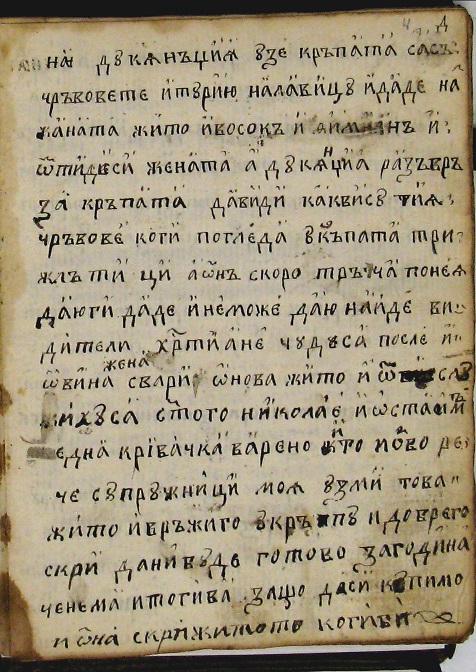 на дꙋкꙗнъциꙗ ꙋзе кръпата сасъ
чръвовете и тꙋрию на лавицꙋ и даде на
жаната жито и восокъ и ѳимианъ и
ѿтиде си жената а дꙋкꙗнциꙗ разъвръ
за кръпата да види какви сꙋ тиꙗ
чръвове коги погледа ꙋ кръпата три
жлъти ци а ѡнъ скоро тръча по неꙗ
да юги даде и не може да ю найде ви
дите ли хр҃тиане чꙋдꙋса после и
ѡвина жена свари ѡнова жито и
жихꙋса ст҃ого николае и ѡстави
една кривачка варено жито и ѡво ре
че сꙋпрꙋжници моꙗ ꙋзми това
жито и връжи го ꙋ кръпꙋ и добре го
скри да ни бꙋде готово за година
че нема и тогива защо да си кꙋпимо
и ѡна скри житото коги би